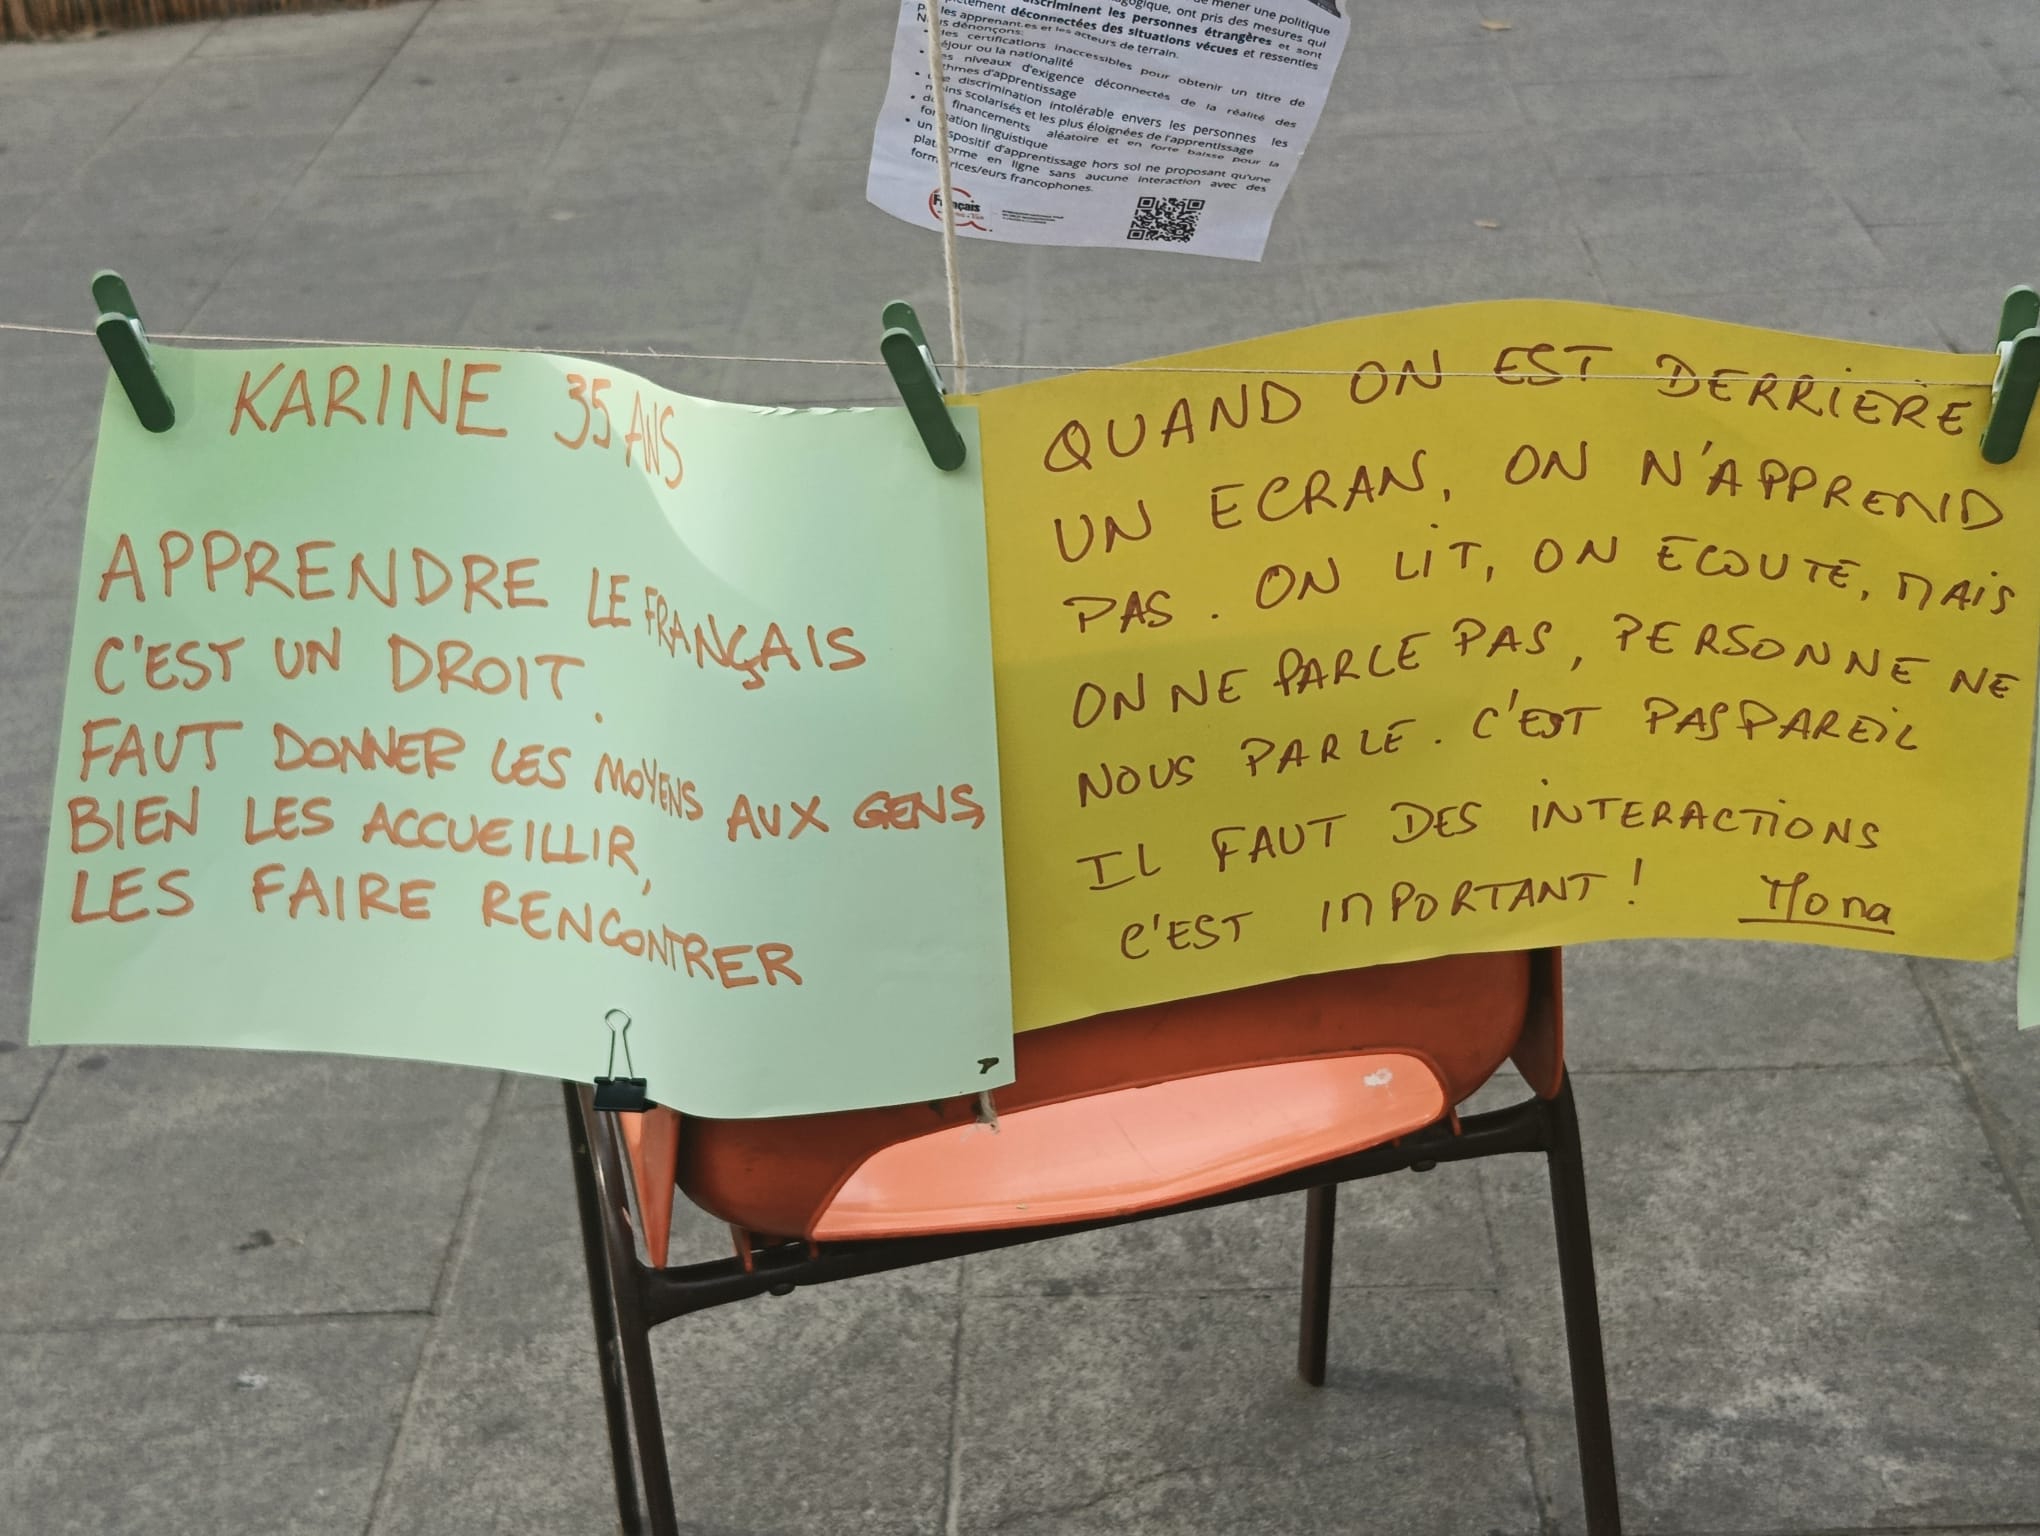 mener une politique
gogique, ont pris des mesures qui
discriminent les personnes étrangères et sont
déconnectées des situations vécues et ressenties
les apprenant.es et les acteurs de terrain.
dénonçons:
certifications inaccessibles pour obtenir un titre de
séjour ou la nationalité
niveaux d'exigence déconnectés de la réalité des
d'apprentissage
discrimination intolérable envers les personnes les
scolarisés et les plus éloignées de l'apprentissage
financements aléatoire et en forte baisse pour la
formation linguistique
un dispositif d'apprentissage hors sol ne proposant qu'une
plateforme en ligne sans aucune interaction avec des
formatrices/eurs francophones.
Français
KARINE 35 ANS
APPRENDRE LE FRANÇAIS
C'EST UN DROIT.
FAUT DONNER LES MOYENS AUX GENS,
BIEN LES ACCUEILLIR,
LES FAIRE RENCONTRER
QUAND ON EST DERRIÈRE
UN ECRAN, ON N'APPREND
PAS. ON LIT, ON ECOUTE, MAIS
ON NE PARLE PAS, PERSONNE NE
NOUS PARLE. C'EST PAS PAREIL
IL FAUT DES INTERACTIONS
C'EST IMPORTANT! Mona